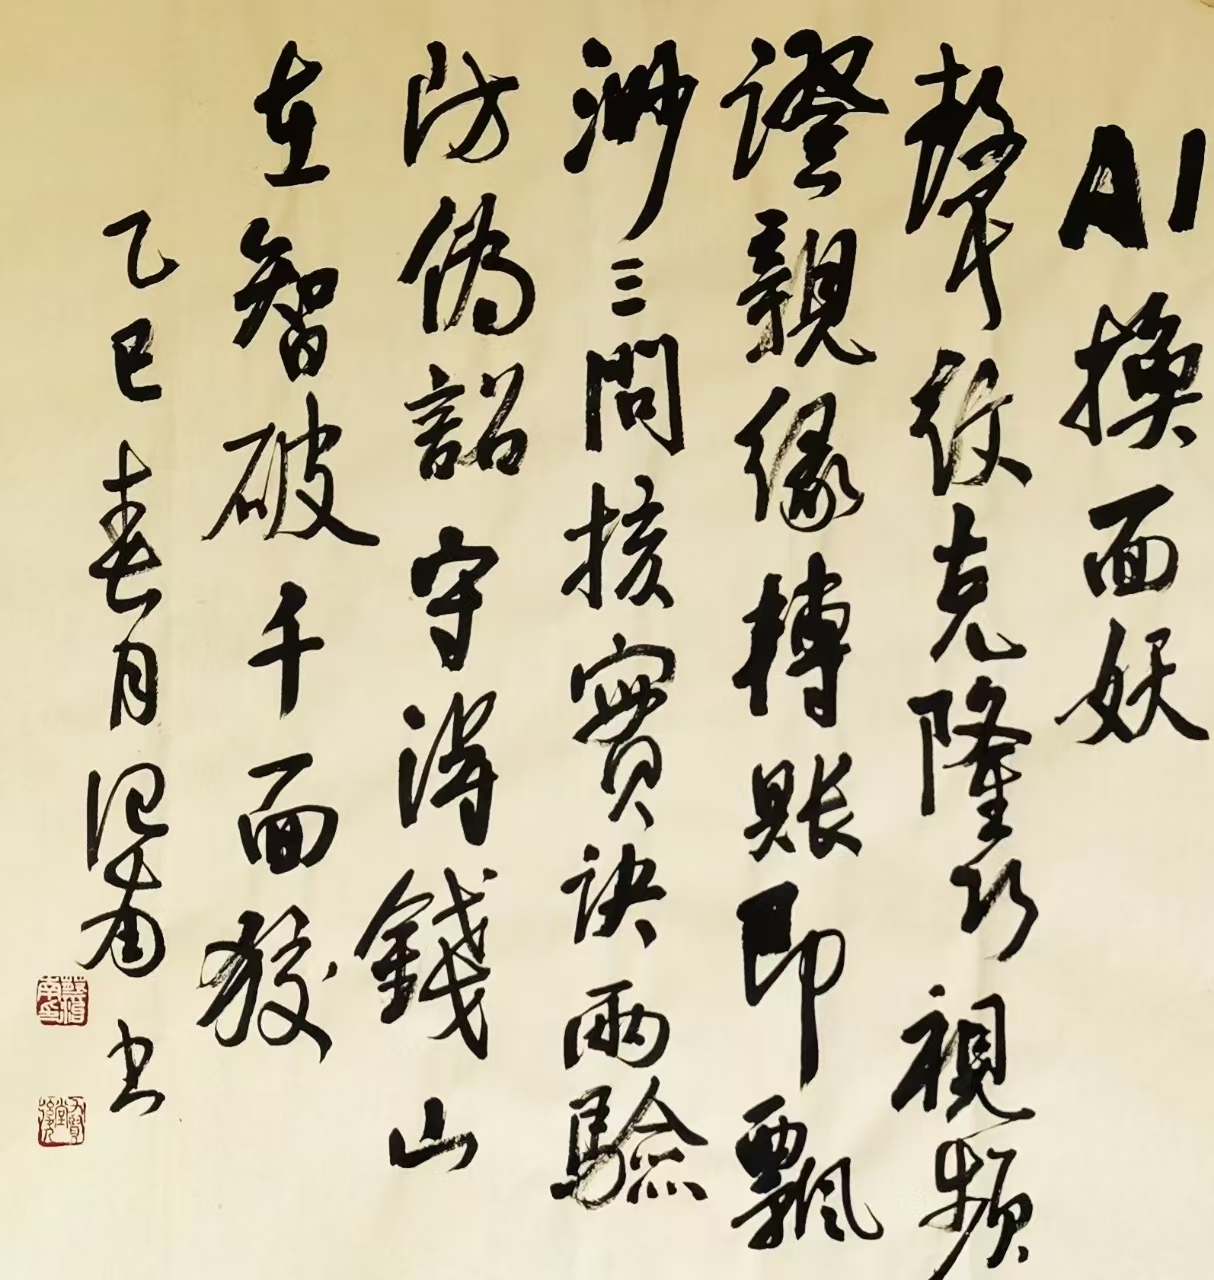 AI換面妖
聲紋克隆巧視頻
證親緣轉賬即飄
渺三問核實訣兩驗
防偽詔守得錢山
在智破千面狡
乙巳春月南书